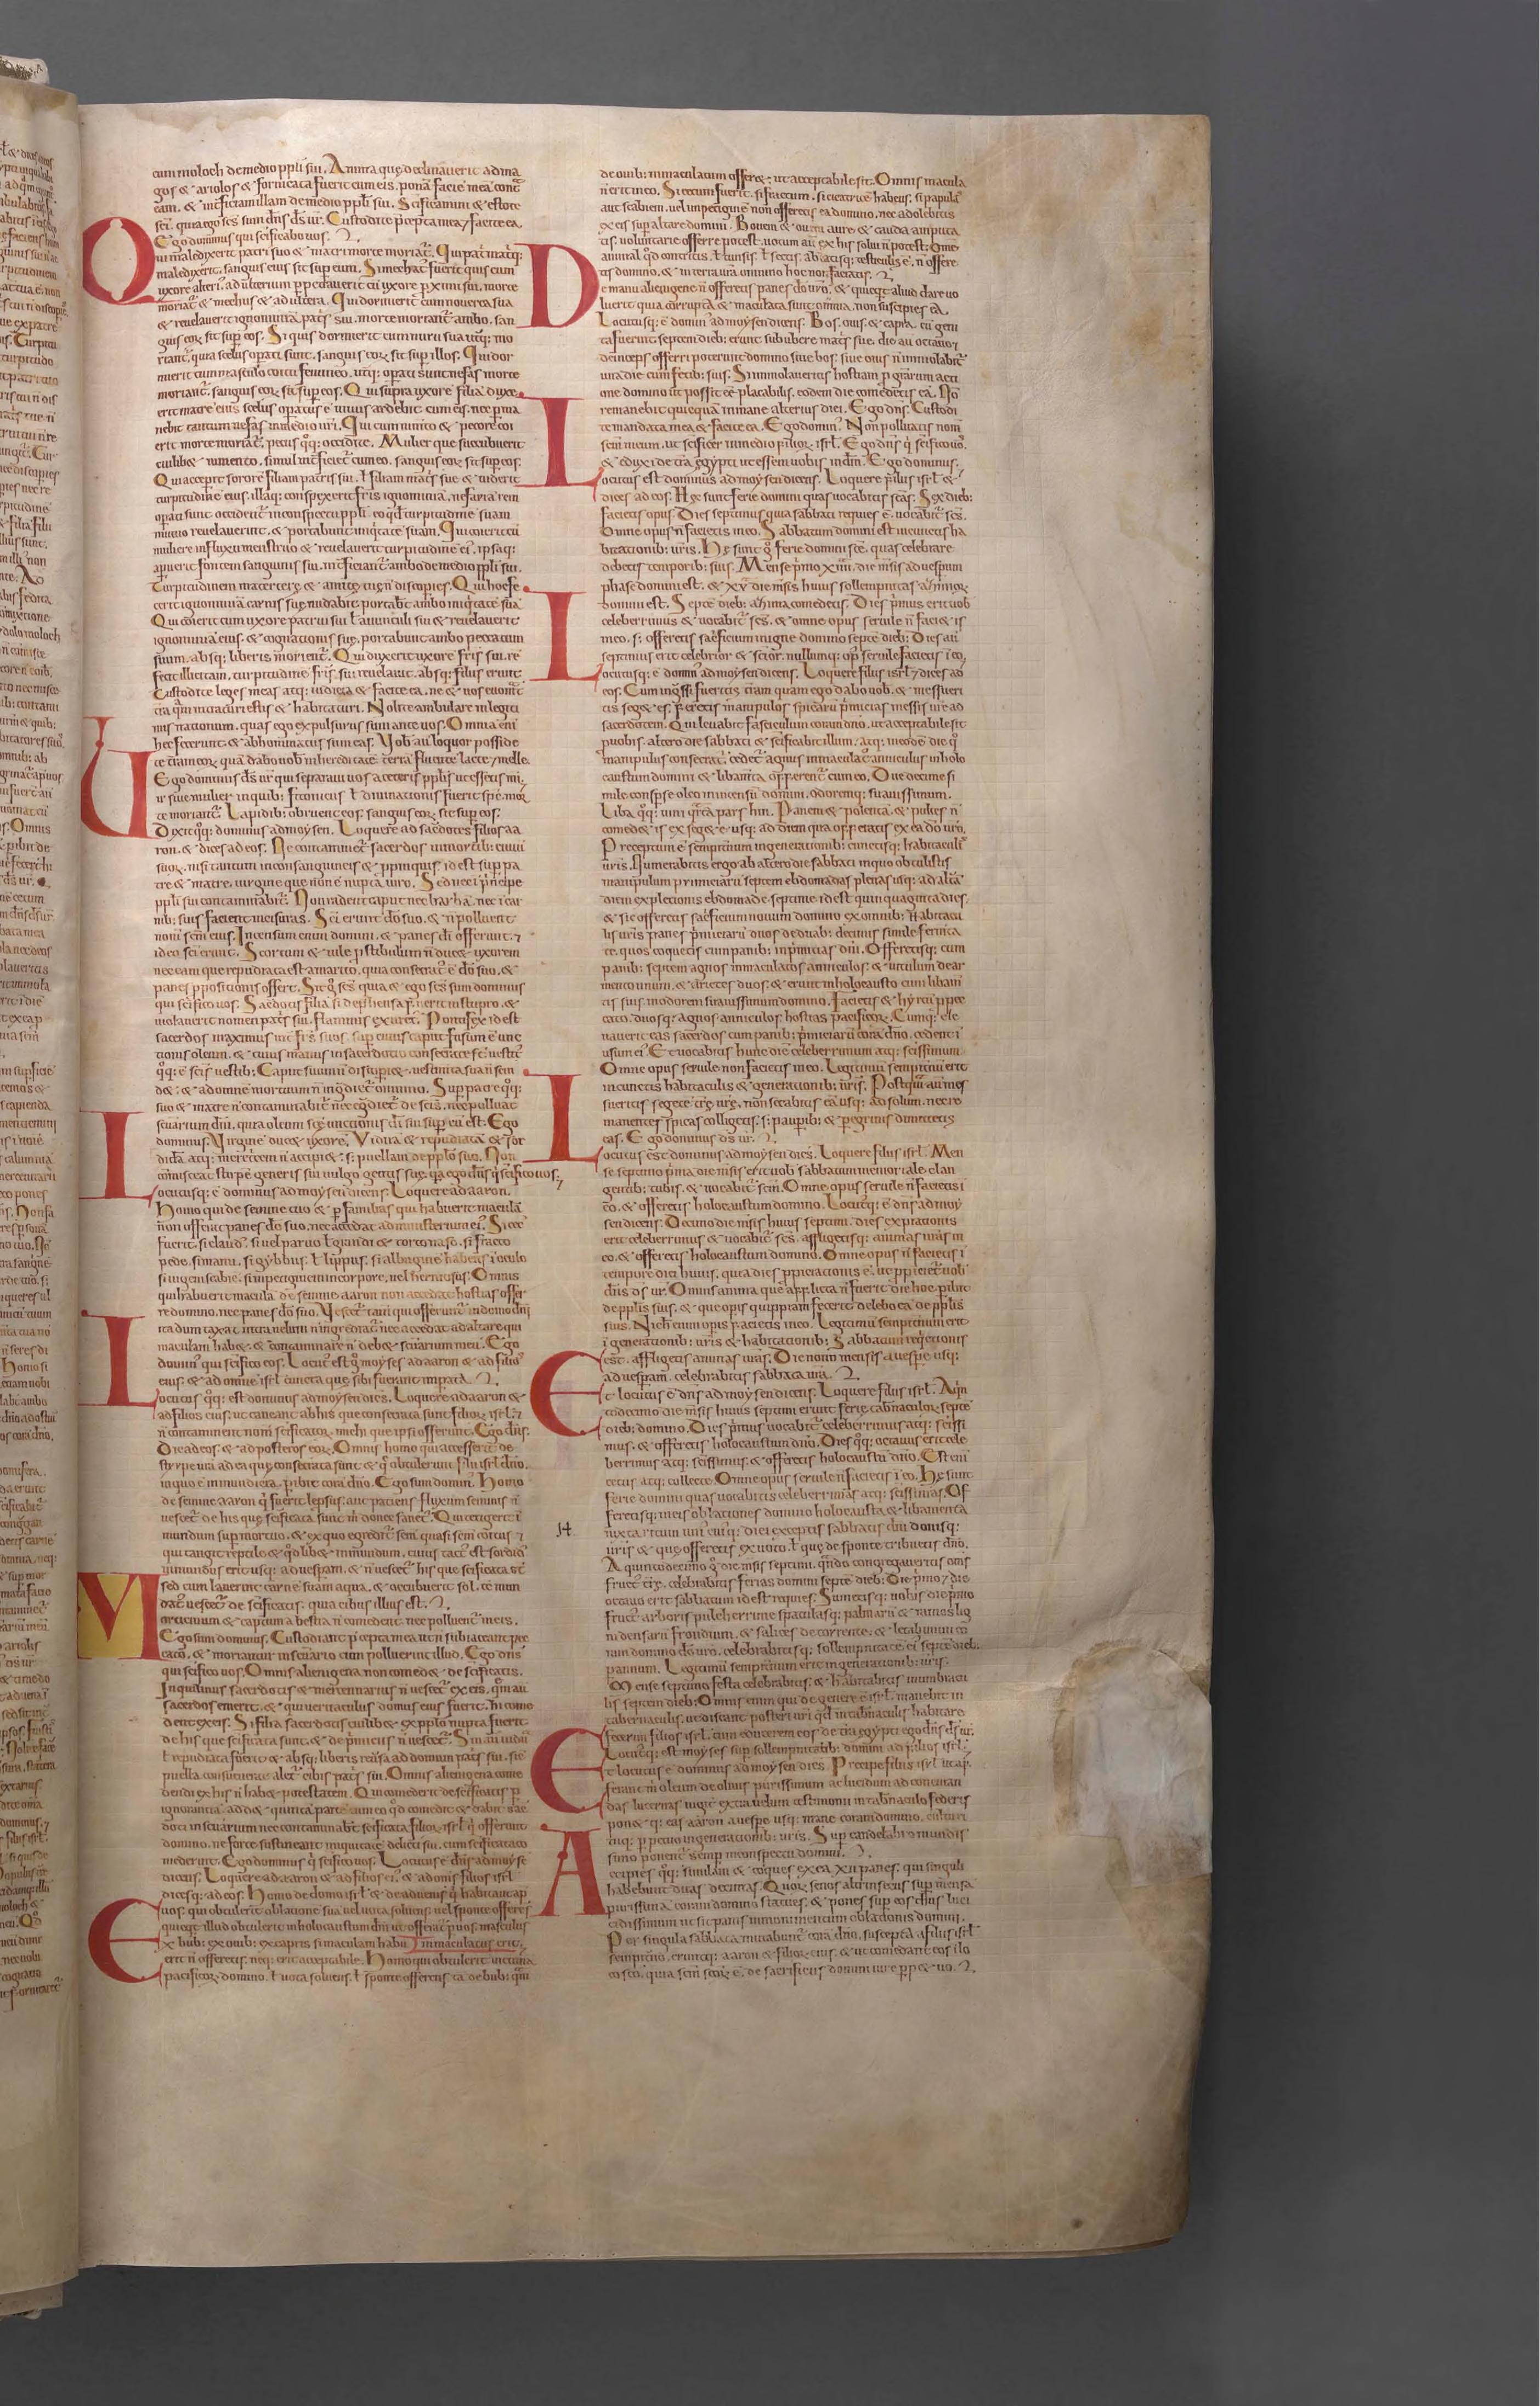 cum moloch de medio ppl̃i sui. Anima quę declinauerit ad ma
gos & ariolos & fornicata fuerit cum eis. ponã faciẽ meã cont̃
eam. & int̃ficiam illam de medio ppl̃i sui. Sc̃ificamini & estote
sc̃i. quia ego sum dñs d̃s ur̃. Custodite p̃cepta mea 7 facite ea.
Ego dominus qui sc̃ifico uos.
Qui maledixerit patri suo & matri morte moriat̃. Qui pat̃ mat̃q:
maledixerit. sanguis eius sit sup eum. Si mechat̃ fuerit quis cum
uxore alteri'. ad ulterium ppetrauerit cũ uxore pximi sui. morte
moriat̃ & mechus & adultera. Qui dormierit cum nouerca sua
& reuelauerit ignominiã pat̃s sui. morte moriant̃ ambo. san
guis eoꝝ sit sup eos. Si quis dormierit cum nuru sua ut̃q: mo
riant̃. quia scelus opati sunt. sanguis eoꝝ sit sup illos. Qui dor
mierit cum masculo coitu femineo. ut̃q: opati sunt nefas morte
moriant̃. sanguis eoꝝ sit sup eos. Qui supra uxorẽ filiã duxe
erit matrẽ eius scelus opatus ẽ uiuus ardebit cum eis. nec pma
nebit tantum nefas in medio uri. Qui cum iumto & pecore coi
erit morte moriat̃. pecus q̃q: occidite. Mulier que succubuerit
cuilib& iumento. simul int̃ficiet̃ cum eo. sanguis eoꝝ sit sup eos.
Qui acceperit sororẽ filiam patris sui. ł filiam mat̃s sue & uiderit
turpitudinẽ eius. illaq: conspexerit fr̃is ignominiã. nefariã rem
opati sunt. occident̃ in conspectu ppl̃i. eo qđ turpitudinẽ suam
mutuo reuelauerint. & portabunt iniq̃tate suam. Qui coierit cũ
muliere in fluxu menstruo & reuelauerit turpitudinẽ ei'. ipsaq:
apuerit fontem sanguinis sui. int̃ficiant̃ ambo de medio ppl̃i sui.
Turpitudinem matertere & amitę tuę ñ discopies. Qui hoc fe
cerit ignominiã carnis suę nudabit. portabt̃ ambo iniq̃tatẽ suã
Qui coierit cum uxore patrui sui ł auunculi sui & reuelauerit
ignominiã eius. & cognationis suę. portabunt ambo peccatum
suum. absq: liberis morient̃. Qui duxerit uxorẽ fr̃is sui. rẽ
fecit illicitam. turpitudinẽ fr̃is sui reuelauit. absq: filiis erunt.
Custodite leges meas atq: iudicia & facite ea. ne & uos euomat̃
tr̃a quã intraturi estis & habitaturi. Nolite ambulare in legiti
mis nationum. quas ego expulsurus sum ante uos. Omnia eni
hec fecerunt. & abhominatus sum eas. Uob au loquor posside
te tr̃am eoꝝ. quã dabo uob in hereditatẽ. terrã fluentẽ lacte 7 melle.
Ego dominus d̃s ur̃ qui separaui uos a ceteris ppl̃is ut essetis mi.
Uir siue mulier in quib: fitonicus ł diuinationis fuerit sp̃s. mor
te moriant̃. Lapidib: obruent eos. sanguis eoꝝ sit sup eos.
Dixit q̃q: dominus ad moysen. Loquere ad sacdotes filios aa
ron. & dices ad eos. Ne contaminet̃ sacerdos in mortib: ciuiũ
suoꝝ. nisi tantum in consanguineis & ppinquis. id est sup pa
tre & matre. uirgine que non ẽ nupta uiro. Sed nec ĩ p̃ncipe
ppl̃i sui contaminabit̃. Non radent caput nec barba. nec ĩ car
nib: suis facient incisuras. Sc̃i erunt dõ suo. & ñ polluent
nom̃ sc̃m eius. Incensum enim domini. & panes di offerunt. 7
ideo sc̃i erunt. Scortum & uile pstibulum ñ duc& uxorem
nec eam que repudiata est a marito. quia consecrat' ẽ dõ suo. &
panes ppositionis offert. Sit g̃ sc̃s quia & ego sc̃s sum dominus
qui sc̃ifico uos. Sacdotis filia si dephensa fuerit in stupro. &
uiolauerit nomen pat̃s sui. flammis exuret̃. Pontifex id est
sacerdos maximus int̃ fr̃s suos. sup cuius caput fusum ẽ unc
tionis oleum. & cuius manus in sacerdotio consecrate st̃ uestit'
q̃q: ẽ sc̃is uestib: Caput suum ñ discopi&. uestimta sua ñ scin
d&. & ad omne mortuum ñ ing̃diet̃ omnino. Sup patre q̃q:
suo & matre ñ contaminabit̃. nec eg̃diet̃ de sc̃is. ne polluat
sc̃uarium dm̃i. quia oleum sc̃ę unctionis di sui sup eũ est. Ego
dominus. Uirginẽ duc& uxorẽ. Viduã & repudiatã & sor
didã. atq: meretricem ñ accipi&. s; puellam de pplo suo. Non
cõmisceat stirpẽ generis sui uulgo gentis suę. q̃a ego dñs q̃ sc̃ifico uos.
Locutusq: ẽ dominus ad moysen dicens. Loquere ad aaron.
Homo qui de semine tuo & p familias qui habuerit maculã
ñ offerat panes dõ suo. nec accedat ad ministeriũ ei'. Si cec'
fuerit. si claud'. si uel paruo ł grandi & torto naso. si fracto
pede. si manu. si gybbus. ł lippus. si albuginẽ habens ĩ oculo
si iugem scabiẽ. si inpetiginẽ in corpore. uel herniosus. Omnis
qui habuerit maculã de semine aaron non accedat hostias offer
re domino. nec panes dõ suo. Vescet̃ tam̃ qui offerunt̃ in domo dñi
ita dum taxat. intra uelum ñ ingrediat̃. nec accedat ad altare. qui
maculam hab&. & contaminare ñ deb& sc̃uarium meũ. Ego
domin' qui sc̃ifico eos. Locut' est g̃ moyses ad aaron & ad filios
eius. & ad omnẽ isrł cuncta quę sibi fuerant impata.
Locutus q̃q: est dominus ad moysen dices. Loquere ad aaron &
ad filios eius. ut caueant ab his que consecrata sunt filioꝝ isrł. 7
ñ contaminent nom̃ sc̃ificatoꝝ michi que ipsi offerunt. Ego dñs.
Dic ad eos. & ad posteros eoꝝ. Omnis homo qui accesserit de
stirpe ur̃a ad ea que consecrata sunt & q̃ obtulerunt filii isrł dño.
in quo ẽ inmunditia. pibit corã dño. Ego sum domin'. Homo
de semine aaron q̃ fuerit lepsus. aut patiens fluxum seminis ñ
uescet̃ de his quę sc̃ificata sunt m̃ donec sanet̃. Qui tetigerit ĩ
mundum sup mortuo. & ex quo egredit̃ sem̃. quasi sem̃ coitus 7
qui tangit reptile & q̃d lib& inmundum. cuius tact' est sordid'
inmundus erit usq: ad uespam. & ñ uescet̃ his que sc̃ificata st̃
sed cum lauerit carnẽ suam aqua. & occubuerit sol. tc̃ mun
dat' uescet̃ de sc̃ificatis. quia cibus illius est.
Morticinum & captum a bestia ñ comedent. nec polluent̃ in eis.
Ego sum dominus. Custodiant p̃cepta mea ut ñ subiaceant pec
cato. & moriantur in sc̃uario cum polluerint illud. Ego dñs
qui sc̃ifico uos. Omnis alienigena non comed& de sc̃ificatis.
Inquilinus sacerdotis & mercennarius ñ uescet̃ ex eis. q̃m au
sacerdos emerit. & qui uernaculus domus eius fuerit. hi come
dent ex eis. Si filia sacerdotis cuilib& ex pplo nupta fuerit
de his que sc̃ificata sunt. & de p̃miciis ñ uescet̃. Sin au uidua
ł repudiata fuerit & absq: liberis reũsa ad domum pat̃s sui. sic
puella consueuerat. alet̃ cibis pat̃s sui. Omnis alienigena come
dendi ex his ñ hab& potestatem. Qui comederit de sc̃ificatis p
ignorantiã. add& quintã partẽ cum eo q̃d comedit. & dabit sac̃
doti in sc̃uarium. nec contaminabt̃ sc̃ificata filioꝝ isrł q̃ offerunt
domino. ne forte sustineant iniquitatẽ delicti sui. cum sc̃ificata co
mederint. Ego dominus q̃ sc̃ifico uos. Locutus ẽ dñs ad moysẽ
dicens. Loquere ad aaron & ad filios ei'. & ad om̃s filios isrł
dicesq: ad eos. Homo de domo isrł & de aduenis q̃ habitant ap
uos. qui obtulerit oblationẽ suã uel uota soluens. uel sponte offerẽs
quicqd illud obtulerit in holocaustum dñi. ut offerat̃ p uos. masculus
Ex bub: ex ouib: ex capris. si maculam habu inmaculatus erit.
erit ñ offeretis. neq: erit acceptabile. Homo qui obtulerit uictimã
pacificoꝝ domino. ł uota soluens. ł sponte offerens tã de bub: quã
de ouib: inmaculatum offer&. ut acceptabile sit. Omnis macula
ñ erit in eo. Si cecum fuerit. si fractum. si cicatricẽ habens. si papulã
aut scabiem. uel inpetiginẽ non offeretis ea domino. nec adolebitis
ex eis sup altare domini. Bouem & ouem aure & cauda amputa
tis. uoluntarie offerre potest. uotum au ex his solui ñ potest. Omne
animal q̃d contritis. ł tunsis. ł sectis. ablatisq: testiculis ẽ. ñ offere
tis domino. & in terra ur̃a omnino hoc non faciatis.
De manu alienigene ñ offeretis panes dõ ur̃o. & quicqt aliud dare uo
luerit. quia corrupta & maculata sunt omnia. non suscipies ea.
Locutusq: ẽ domin' ad moysen dicens. Bos. ouis. & capra. cũ geni
ta fuerint. septem dieb: erunt sub ubere mat̃s sue. die au octauo 7
deinceps offerri poterunt domino. siue bos. siue ouis ñ immolabunt̃
una die cum fetib: suis. Si immolaueritis hostiam p grarum acti
one domino ut possit eẽ placabilis. eodem die comedetis eã. Nõ
remanebit quicquã in mane alterius diei. Ego dñs. Custodi
te mandata mea & facite ea. Ego domin'. Non polluatis nom̃
sc̃m meum. ut sc̃ificer in medio filioꝝ isrł. Ego dñs q̃ sc̃ifico uos.
& eduxi de tr̃a egypti ut essem uobis in dm̃. Ego dominus.
Locutus est dominus ad moysen dicens. Loquere filiis isrł &
dices ad eos. Hę sunt ferie domini quas uocabitis sc̃as. Sex dieb:
facietis opus. Dies septimus quia sabbati requies ẽ. uocabit̃ sc̃s.
Omne opus ñ facietis in eo. Sabbatum domini est in cunctis ha
bitationib: ur̃is. Hę sunt g̃ ferie domini sc̃e. quas celebrare
debetis temporib: suis. Mense p̃mo xiiii. die m̃sis ad uespum
phase domini est. & xv die m̃sis huius sollempnitas azimoꝝ
domini est. Septẽ dieb: azima comedetis. Dies p̃mus erit uob
celeberrimus & uocabit̃ sc̃s. & omne opus seruile ñ faci&is
in eo. s; offeretis sac̃ficium in igne domino septẽ dieb: Dies au
septimus erit celebrior & sc̃ior. nullumq: op' seruile facietis ĩ eo.
Locutusq: ẽ domin' ad moysen dicens. Loquere filiis isrł 7 dices ad
eos. Cum ing̃ssi fueritis tr̃am quam ego dabo uob. & messueri
tis seg&es. feretis manipulos spicarũ p̃micias messis ur̃e ad
sacerdotem. Qui leuabit fasciculum coram dño. ut acceptabile sit
p uobis. altero die sabbati & sc̃ificabit illum. atq: in eodẽ die q̃
manipulus consecrat̃. cedet̃ agnus inmaculat' anniculus in holo
caustum domini & libam̃ta offerent̃ cum eo. Due decime si
mile consp̃se oleo in incensũ domini. odoremq: suauissimum.
Liba q̃q: uini q̃rta pars hin. Panem & polentã. & pultes ñ
comed&is ex seg&e usq: ad diem qua offeretis ex ea dõ ur̃o.
Preceptum ẽ sempiternum in generationib: cunctisq: habitaculis
ur̃is. Numerabitis ergo ab altero die sabbati in quo obtulistis
manipulum primiciarũ septem ebdomadas plenas usq: ad altã
diem expletionis ebdomadẽ septime. id est quinquaginta dies.
& sic offeretis sac̃ficium nouum domino ex omnib: habitacu
lis ur̃is. panes p̃miciarũ duos de duab: decimis simile fermta
te. quos coquetis cum panib: in p̃micias dñi. Offeretisq: cum
panib: septem agnos inmaculatos anniculos. & uitulum de ar
mento unum. & arietes duos. & erunt in holocausto cum libam̃
tis suis. in odorem suauissimum domino. Facietis & hyrcũ p pec
cato. duosq: agnos anniculos. hostias pacificoꝝ. Cumq: ele
uauerit eas sacerdos cum panib: p̃miciarũ corã dño. cedent ĩ
usum ei'. Et uocabitis hunc diẽ celeberrimum atq: sc̃issimum.
Omne opus seruile non facietis in eo. Legitimũ sempitnũ erit
in cunctis habitaculis & generationib: ur̃is. Postquã au mes
sueritis segetẽ tr̃ę ur̃ę. non secabitis eã usq: ad solum. nec re
manentes spicas colligetis. s; paupib: & pegrinis dimittetis
eas. Ego dominus d̃s ur̃.
Locutus est dominus ad moysen dices. Loquere filiis isrł. Men
se septimo p̃ma die m̃sis erit uob sabbatum memoriale. clan
gentib: tubis. & uocabit̃ sc̃m. Omne opus seruile ñ facietis ĩ
eo. & offeretis holocaustum domino. Locutq: ẽ dñs ad moy
sen dicens. Decimo die m̃sis huius septimi. dies expiationis
erit celeberrimus & uocabit̃ sc̃s. affligetisq: animas ur̃as in
eo. & offeretis holocaustum domino. Omne opus ñ facietis ĩ
tempore diei huius. quia dies ppitiationis ẽ. ut ppitiet̃ uob
dñs d̃s ur̃. Omnis anima quę afflicta ñ fuerit die hoc. pibit
de pplis suis. & que opis quippiam fecerit. delebo eã de pplis
suis. Nichil enim opis facietis in eo. Legitimũ sempitnum erit
ĩ generationib: ur̃is & habitationib: Sabbatum req̃etionis
est. affligetis animas ur̃as. Die nono mensis a uespe usq:
ad uespam. celebrabitis sabbata ur̃a.
Et locutus ẽ dñs ad moysen dicens. Loquere filiis isrł. A q̃n
todecimo die m̃sis huius septimi erunt ferię tab̃naculoꝝ septẽ
dieb: domino. Dies p̃mus uocabit̃ celeberrimus atq: sc̃issi
mus. & offeretis holocaustum dño. Dies q̃q: octauus erit cele
berrimus atq: sc̃issimus. & offeretis holocaustũ dño. Est eni
cetus atq: collecte. Omne opus seruile ñ facietis ĩ eo. Hę sunt
ferie domini quas uocabitis celeberrimas atq: sc̃issimas. Of
feretisq: in eis oblationes domino holocausta & libamenta
iuxta ritum uni' cui'q: diei exceptis sabbatis dñi donisq:
ur̃is & quę offeretis ex uoto. ł quę de sponte tribuetis dño.
A quintodecimo g̃ die m̃sis septimi. q̃ndo congregaueritis om̃s
fruct' tr̃ę. celebrabitis ferias domini septẽ dieb: Die p̃mo 7 die
octauo erit sabbatum. id est requies. Sumetisq: uobis die p̃mo
fruct' arboris pulcherrime. spatulasq: palmarũ & ramos lig
ni densarũ frondium. & salices de torrente. & letabimini co
ram domino dõ ur̃o. celebrabitisq: sollempnitatẽ ei' septẽ dieb:
p annum. Legitimũ sempitnum erit in generationib: ur̃is.
Mense septimo festa celebrabitis. & habitabitis in umbracu
lis septem dieb: Omnis enim qui de genere ẽ isrł. manebit in
tabernaculis. ut discant posteri uri qđ in tab̃naculis habitare
fecerim filios isrł. cum educerem eos de tr̃a egypti ego dñs d̃s ur̃.
Locutq: est moyses sup sollempnitatib: domini ad filios isrł.
Et locutus ẽ dominus ad moysen dices. Precipe filiis isrł ut af
ferant m̃ oleum de oliuis purissimum ac lucidum ad concinnan
das lucernas iugit̃ extra uelum testimonii in tab̃naculo federis
pon&q: eas aaron a uespe usq: mane coram domino. cultu ri
tuq: ppetuo in generationib: ur̃is. Sup candelabro mundis
simo ponent̃ semp in conspectu domini.
Accipies q̃q: similam & coques ex ea xii panes. qui singuli
habebunt duas decimas. Quoꝝ senos altrinsecus sup mensã
purissimã coram domino statues. & pones sup eos thus luci
dissimum ut sit panis in monimentum oblationis domini.
Per singula sabbata mutabunt̃ corã dño. suscepta a filiis isrł
sempitno. eruntq: aaron & filioꝝ eius. & ut comedant eos ĩ lo
co sc̃o. quia sc̃m sc̃oꝝ ẽ. de sacrificiis domini iure pp&uo.